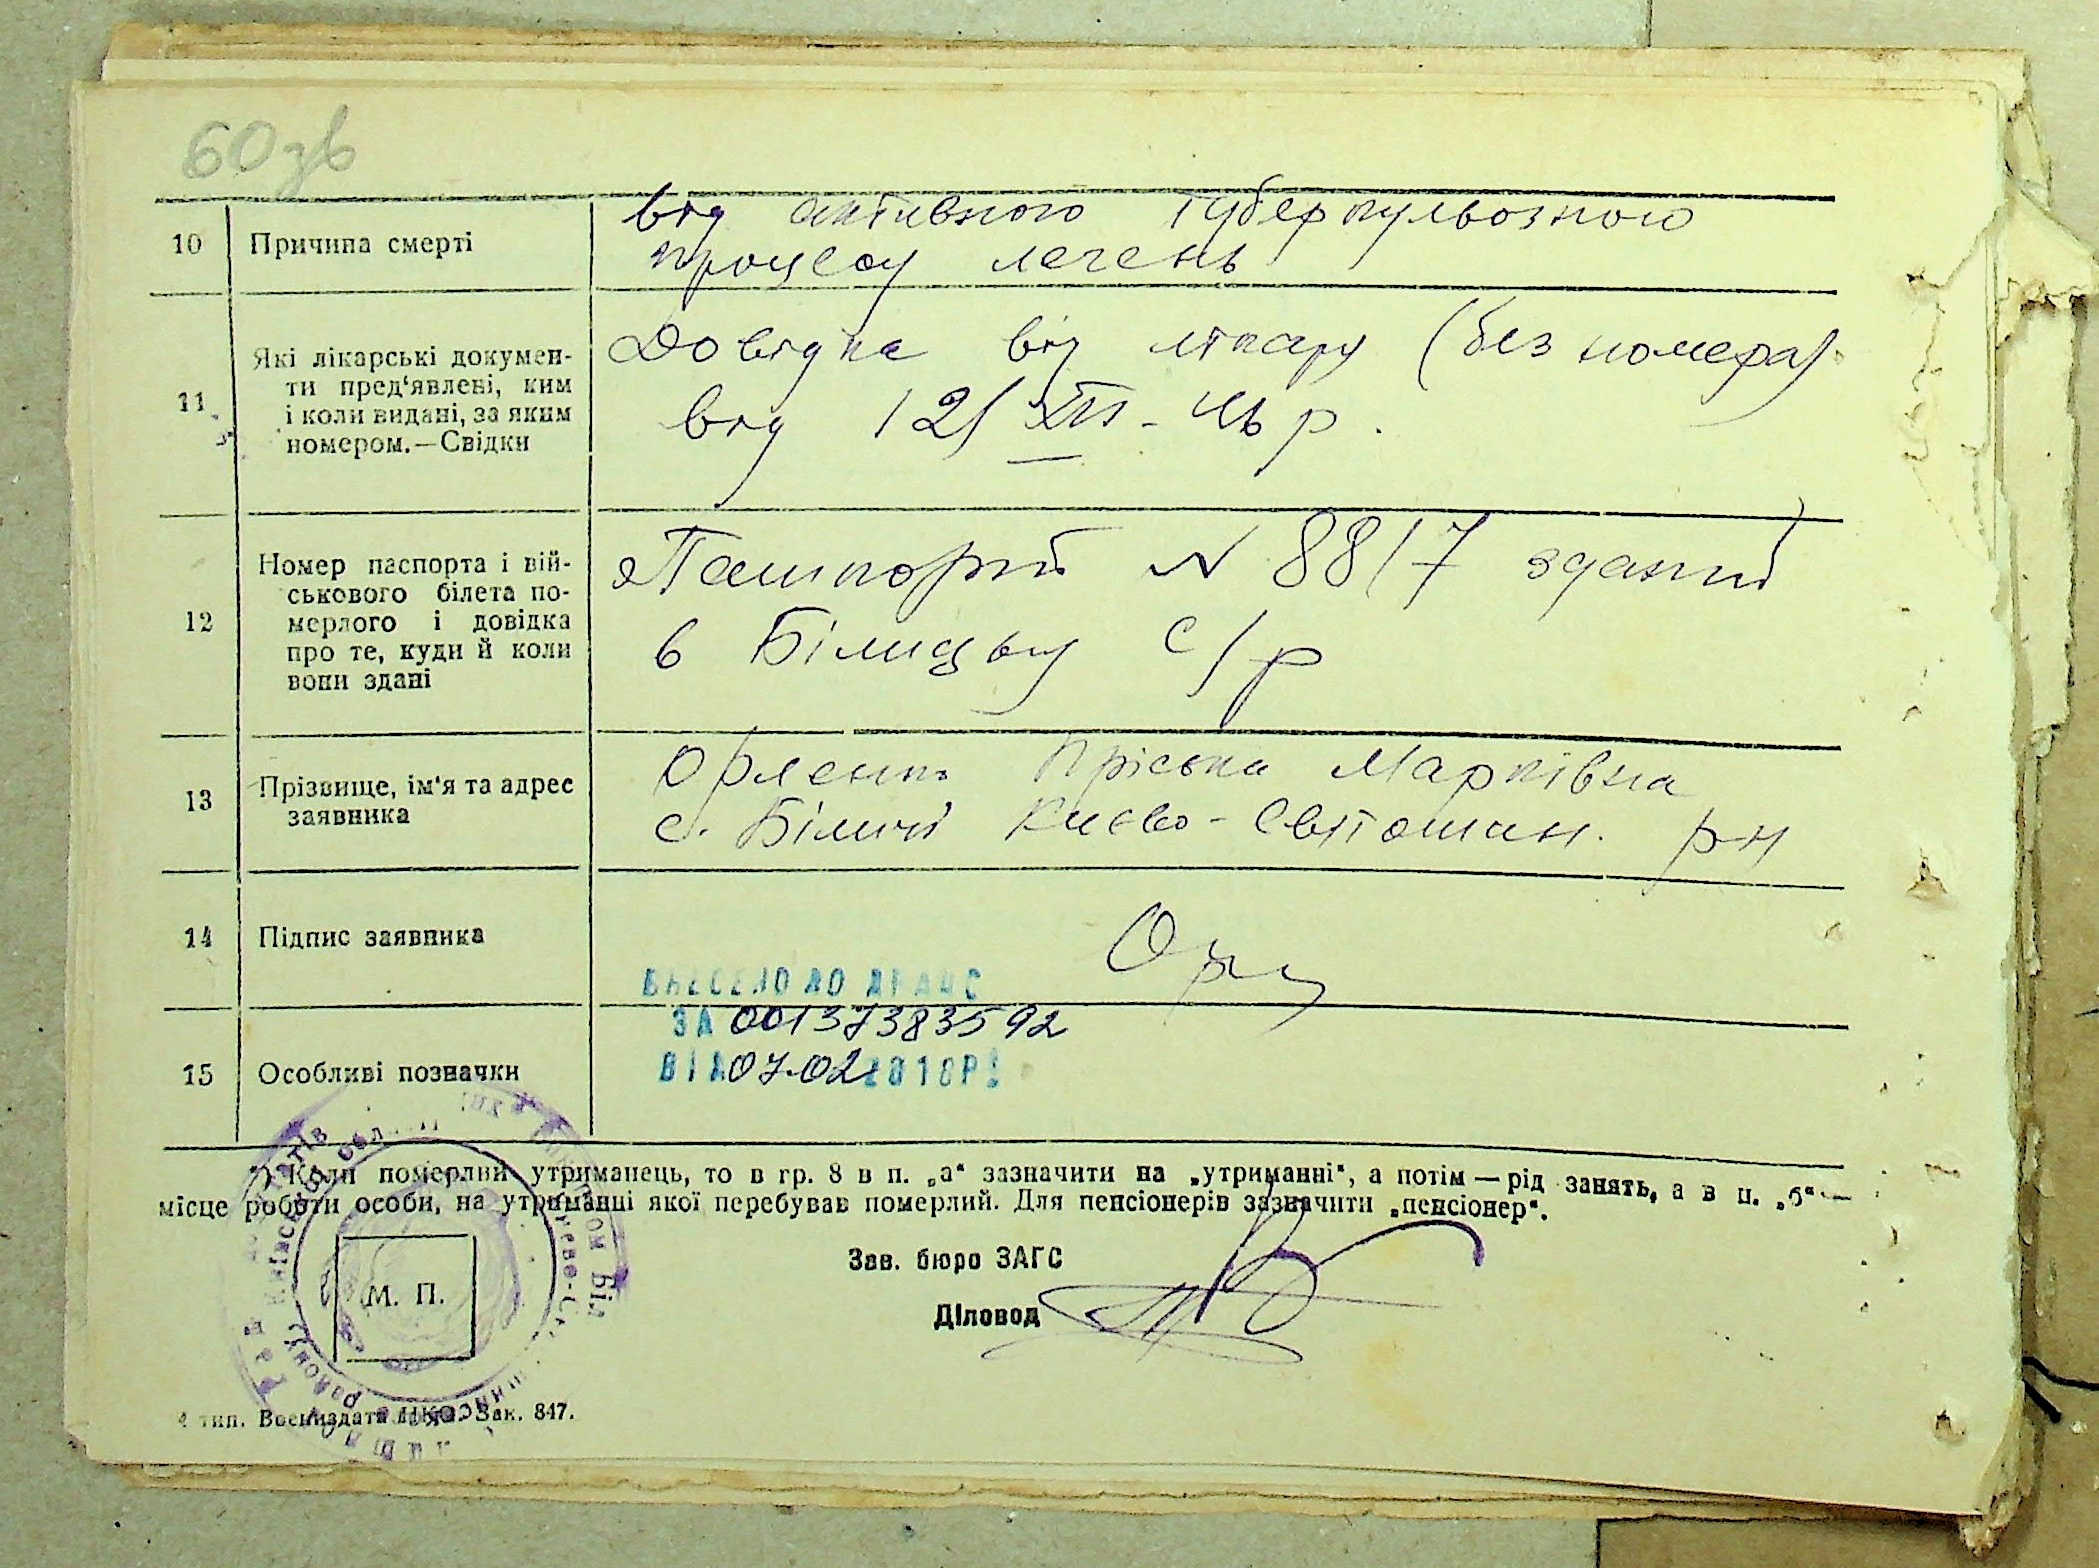 60зв
10 Причина смерті
від активного туберкульозного
процесу легень
11 Які лікарські докумен-
ти пред‘явлені, ким
і коли видані, за яким
номером.—Свідки
Довідка від лікару (без номера)
від 12/XII-
12 Номер паспорта і вій-
ськового білета по-
мерлого і довідка
про те, куди й коли
вони здані
Пашпорт N 8817 зданий
в Біліцьку с/р
13 Прізвище, ім‘я та адрес
заявника
Орленко Пріська Марківна
с. Біличі Києво-Святошин. рн
14 Підпис заявника
ВНЕСЕНО ДО ДРАЦС
ЗА 00137383592
15 Особливі позначки
ВІД 07.02 2018Р.
*) Коли померлий утриманець, то в гр. 8 в п. „а“ зазначити на „утриманні“, а потім — рід занять, а в п. „б“ —
місце роботи особи, на утриманні якої перебував померлий. Для пенсіонерів зазначити „пенсіонер“.
Зав. бюро ЗАГС
М. П.
Діловод
4 тип. Воениздата НКО. Зак. 847.